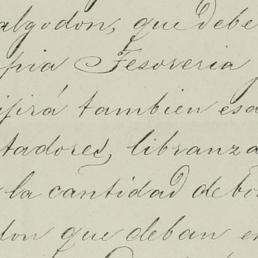 algodon, que debe
pia Tesoreria
ifirá tambien esa
tadores, libranza
la cantidad de bo
don que deban en